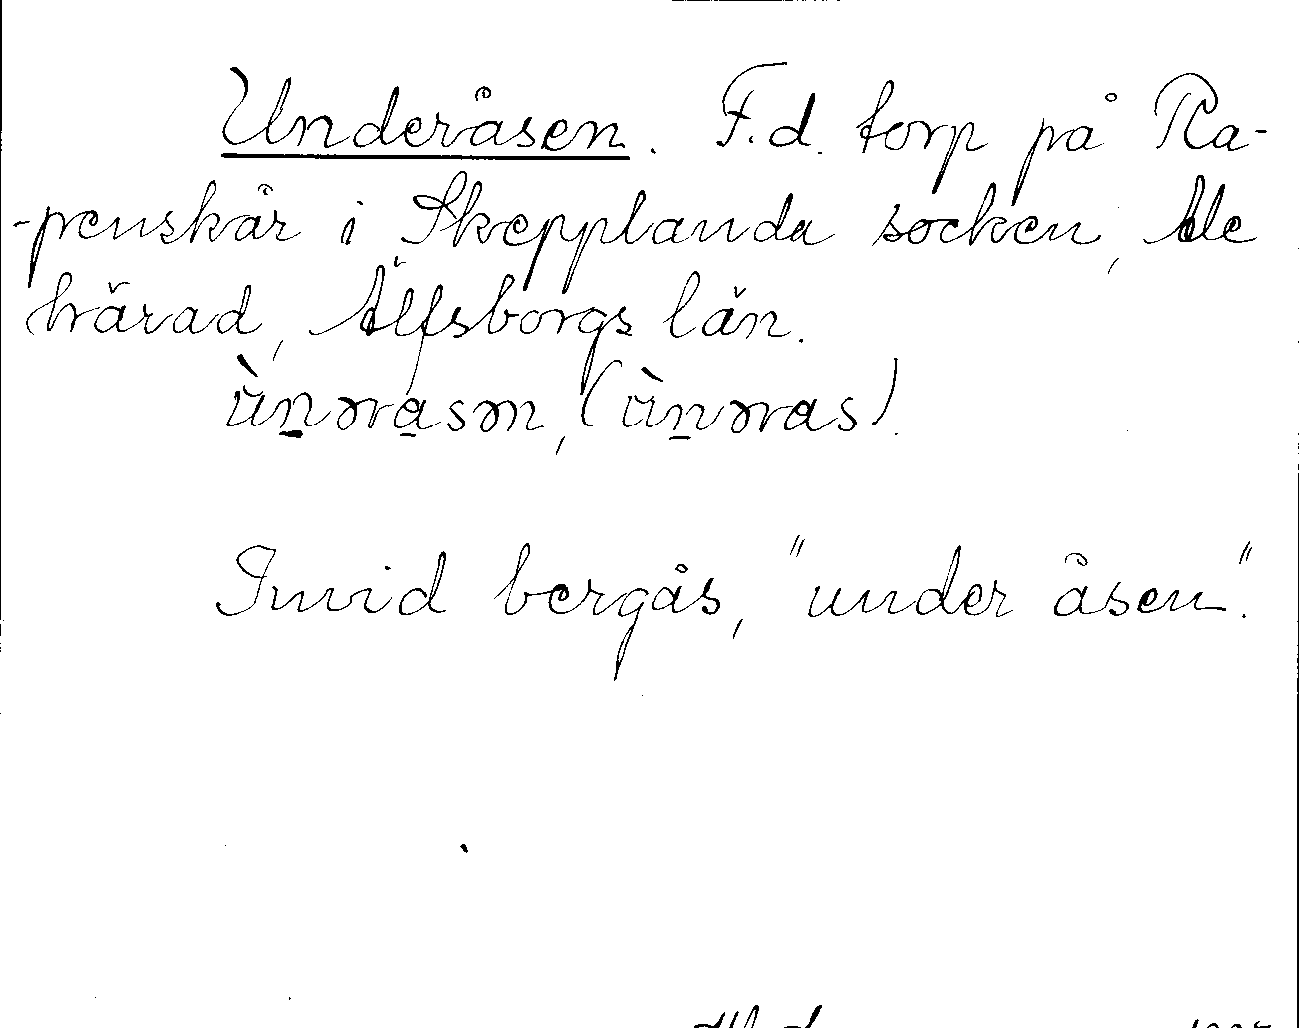 Underåsen. F.d. torp på Ra-
-penskår i Skepplanda socken, Ale
härad, Älfsborgs län.
Invid bergås, "under åsen".